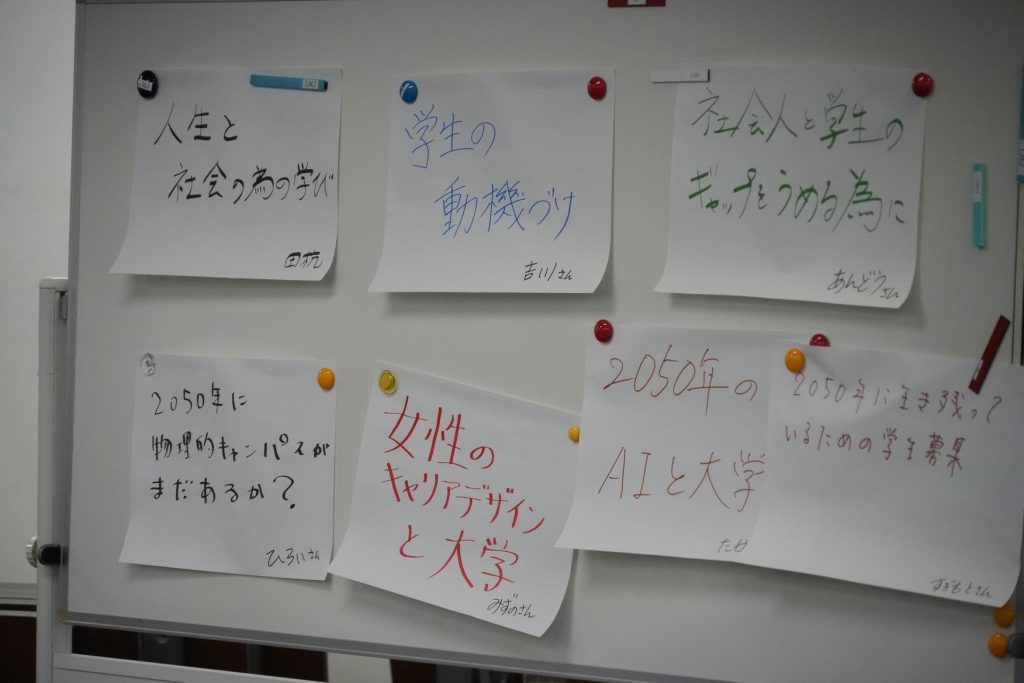 人生と
社会の為の学び
田杭
学生の
動機づけ
吉川さん
社会人と学生の
ギャップをうめる為に
あんどうさん
2050年に
物理的キャンパスが
まだあるか?
ひろいさん
女性の
キャリアデザイン
と大学
みずのさん
2050年の
AIと大学
2050年に生き残って
いるための学生募集
すぎもとさん